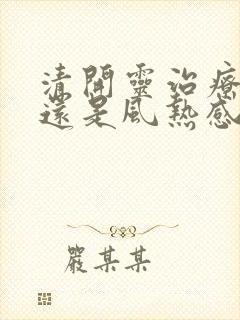 清開靈治療
還是風熱感
嚴某某